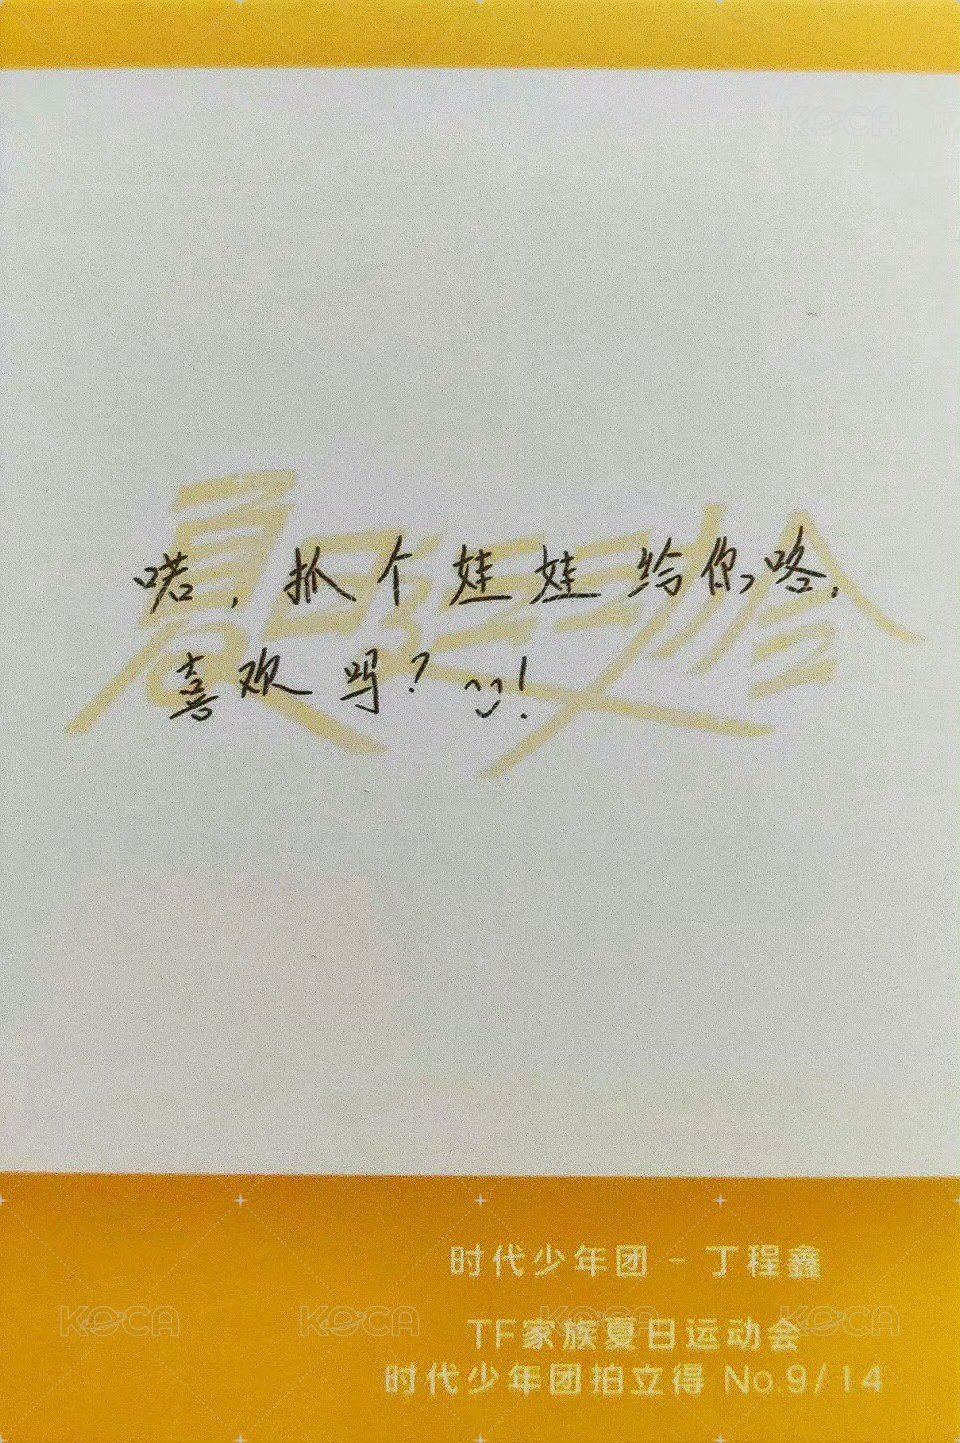 KOCA
夏日运动会
喏，抓个娃娃给你咯，
喜欢吗？!
时代少年团 - 丁程鑫
KOCA KOCA KOCA KOCA
TF家族夏日运动会
时代少年团拍立得 No.9/14